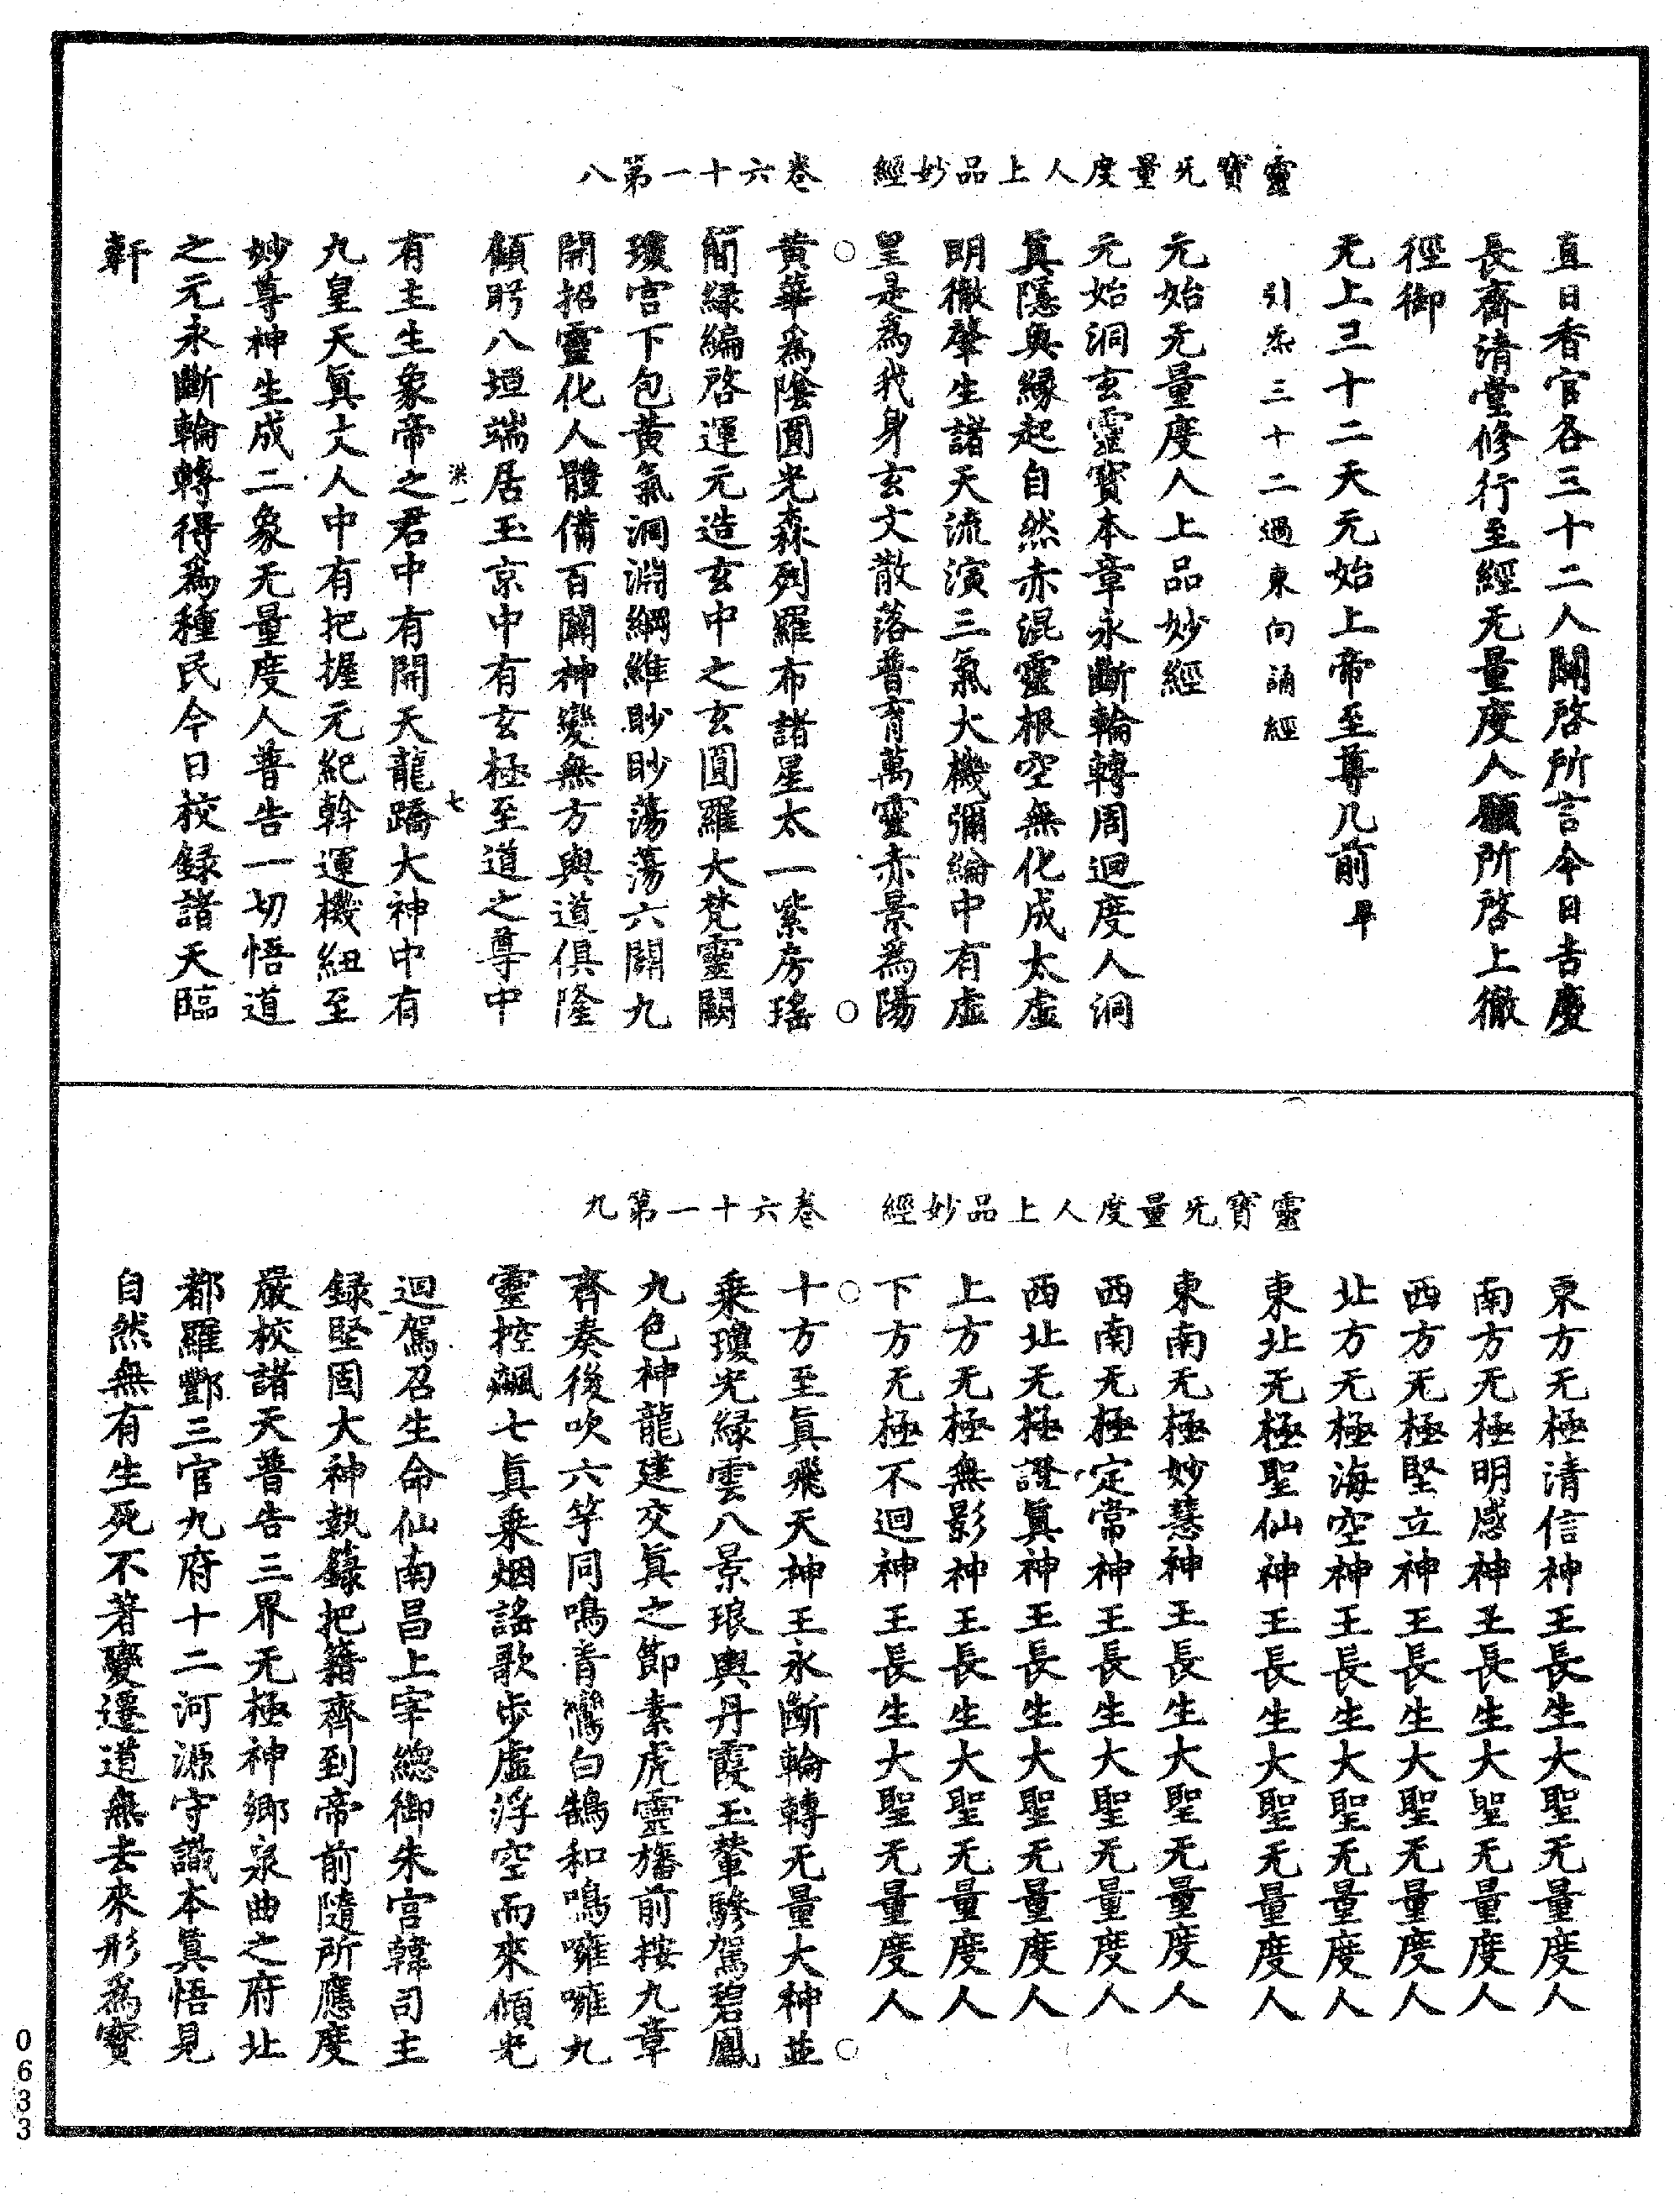 靈寶无量度人上品妙經　卷六十一第八
直日香官各三十二人關啓所言今日吉慶
長齋清堂修行至經无量度人願所啓上徹
徑御
无上三十二天元始上帝至尊几前畢
引炁三十二過東向誦經
元始无量度人上品妙經
元始洞玄靈寶本章永斷輪轉周迴度人洞
眞隱奥緣起自然赤混靈根空無化成太虛
明徹肇生諸天流演三氣大機彌綸中有虛
皇是爲我身玄文散落普育萬靈赤景爲陽
黃華爲陰圓光森列羅布諸星太一紫房瑤
簡綠編啓運元造玄中之玄圓羅大梵靈關
瓊宮下包黃氣洞淵綱維眇眇蕩蕩六關九
開招靈化人體備百關神變無方與道俱隆
顧盻八垣端居玉京中有玄極至道之尊中
有主生象帝之君中有開天龍蹻大神中有
洪一　七
九皇天眞丈人中有把握元紀斡運機紐至
妙尊神生成二象无量度人普告一切悟道
之元永斷輪轉得爲種民今日校錄諸天臨
軒
靈寶无量度人上品妙經　卷六十一第九
東方无極清信神王長生大聖无量度人
南方无極明感神王長生大聖无量度人
西方无極堅立神王長生大聖无量度人
北方无極海空神王長生大聖无量度人
東北无極聖仙神王長生大聖无量度人
東南无極妙慧神王長生大聖无量度人
西南无極定常神王長生大聖无量度人
西北无極證眞神王長生大聖无量度人
上方无極無影神王長生大聖无量度人
下方无極不迴神王長生大聖无量度人
十方至眞飛天神王永斷輪轉无量大神並
乘瓊光綠雲八景琅輿丹霞玉輦驂駕碧鳳
九色神龍建交眞之節素虎靈旛前按九章
齊奏後吹六竽同鳴青鸞白鵠和鳴嗈嗈九
靈控飆七眞乘烟謠歌步虛浮空而來傾光
迴駕召生命仙南昌上宰總御朱宮韓司主
錄堅固大神執籙把籍齊到帝前隨所應度
嚴校諸天普告三界无極神鄉泉曲之府北
都羅酆三官九府十二河源守識本眞悟見
自然無有生死不著變遷道無去來形爲寶
0633